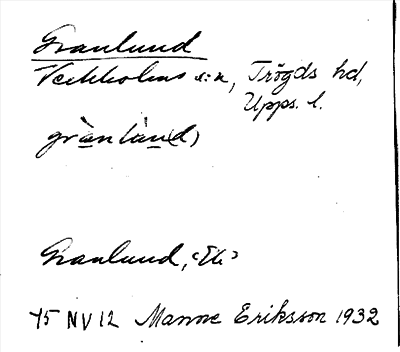 Granlund
Veckholms s:n, Trögds hd,
Upps. l.
grànlàn(d)
Granlund, ‹Et›
45 NV 12 Manne Eriksson 1932